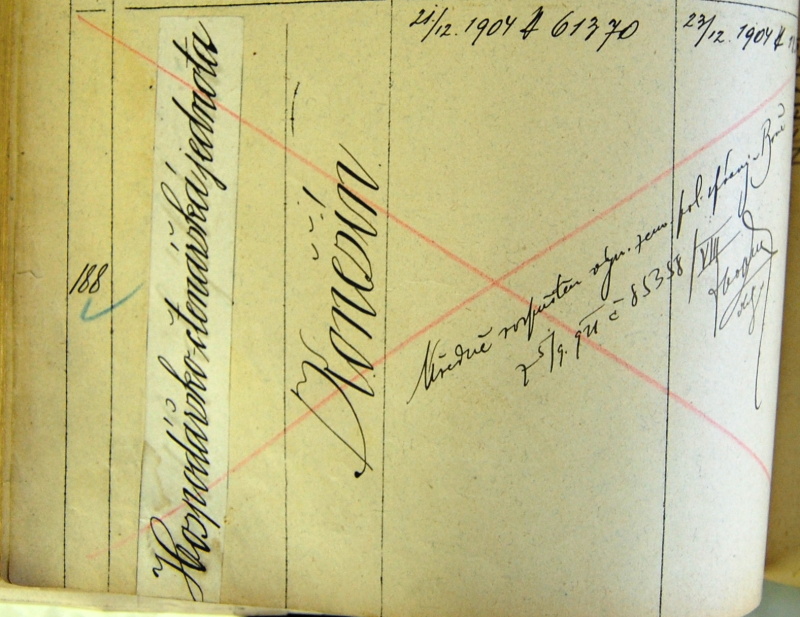 188
Hospodářsko-čtenářská jednota
Konešín
21/12. 1904 # 61370
23/12. 1904 #
Úředně rozpuštěn výn. zem. pol. správy v Brně
z 5/9. 911 č 85358/VIII